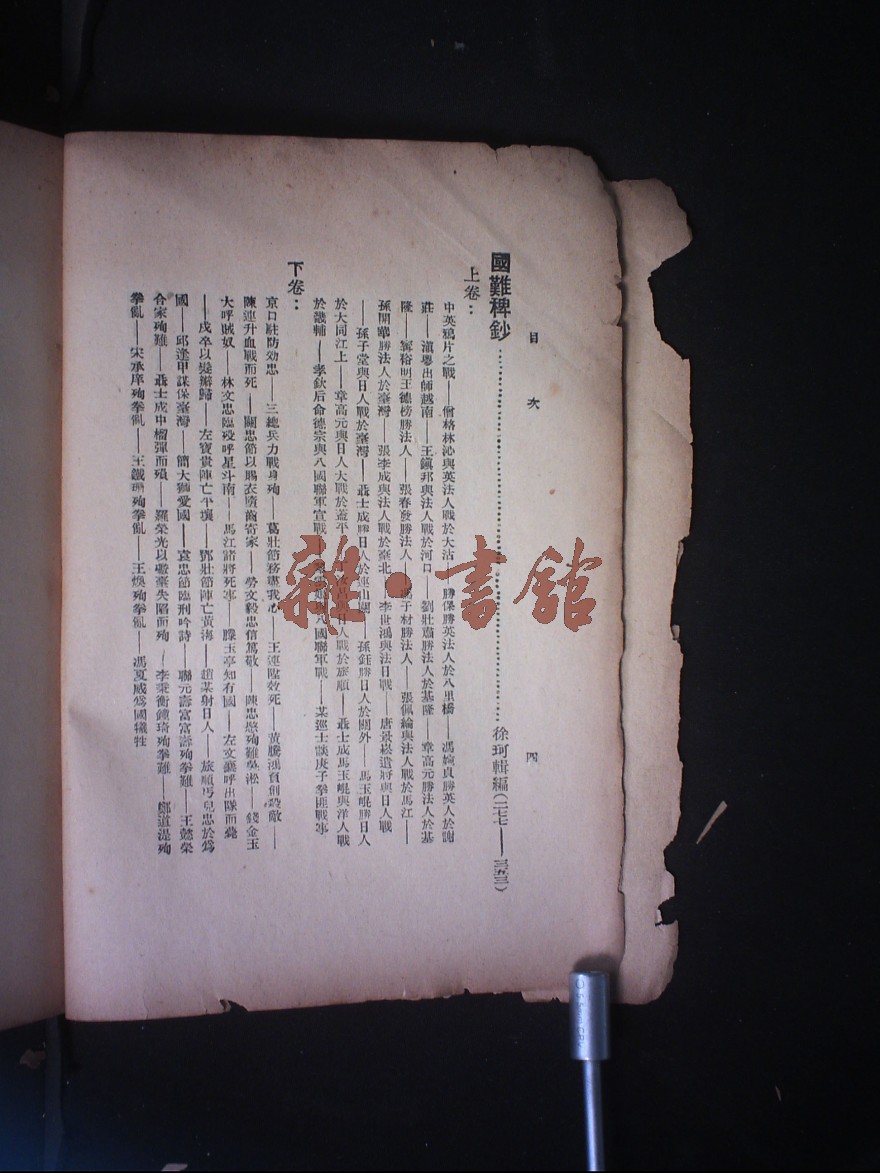 目次
四
國難稗鈔……徐珂輯編(二七七——三五三)
上卷：
中英鴉片之戰——僧格林沁與英法人戰於大沽——勝保勝英法人於八里橋——馮婉貞勝英人於謝
莊——滇粵出師越南——王鎭邦與法人戰於河口——劉壯肅勝法人於基隆——章高元勝法人於基
隆——甯裕明王德榜勝法人——張春發勝法人——馮子材勝法人——張佩綸與法人戰於馬江——
孫開華勝法人於臺灣——張李成與法人戰於臺北——李世鴻與法日戰——唐景崧遺將與日人戰
——孫子堂與日人戰於臺灣——聶士成勝日人於連山關——孫鈺勝日人於關外——馬玉崐勝日人
於大同江上——章高元與日人大戰於蓋平——日人戰於旅順——聶士成馬玉崐與洋人戰
於畿輔——孝欽后命德宗與八國聯軍宣戰——八國聯軍戰——某巡士談庚子拳匪戰事
下卷：
京口駐防効忠——三總兵力戰身殉——葛壯節務盡我心——王連陞效死——黃騰鴻負創殺敵——
陳連升血戰而死——關忠節以賜衣墮齒寄家——勞文毅忠信篤敬——陳忠愍殉難吳淞——錢金玉
大呼賊奴——林文忠臨歿呼星斗南——馬江諸將死事——滕玉亭知有國——左文襄呼出隊而薨
——戍卒以髮辮歸——左寶貴陣亡平壤——鄧壯節陣亡黃海——趙某射日人——旅順丐兒忠於爲
國——邱逢甲謀保臺灣——簡大獅愛國——袁忠節臨刑吟詩——聯元壽富富壽殉拳難——王懿榮
合家殉難——聶士成中榴彈而殞——羅榮光以礮臺失陷而殉——李秉衡鍾琦殉拳難——鄭道湜殉
拳亂——宋承庠殉拳亂——王鐵珊殉拳亂——王煥殉拳亂——馮夏威爲國犧牲
雜·書館